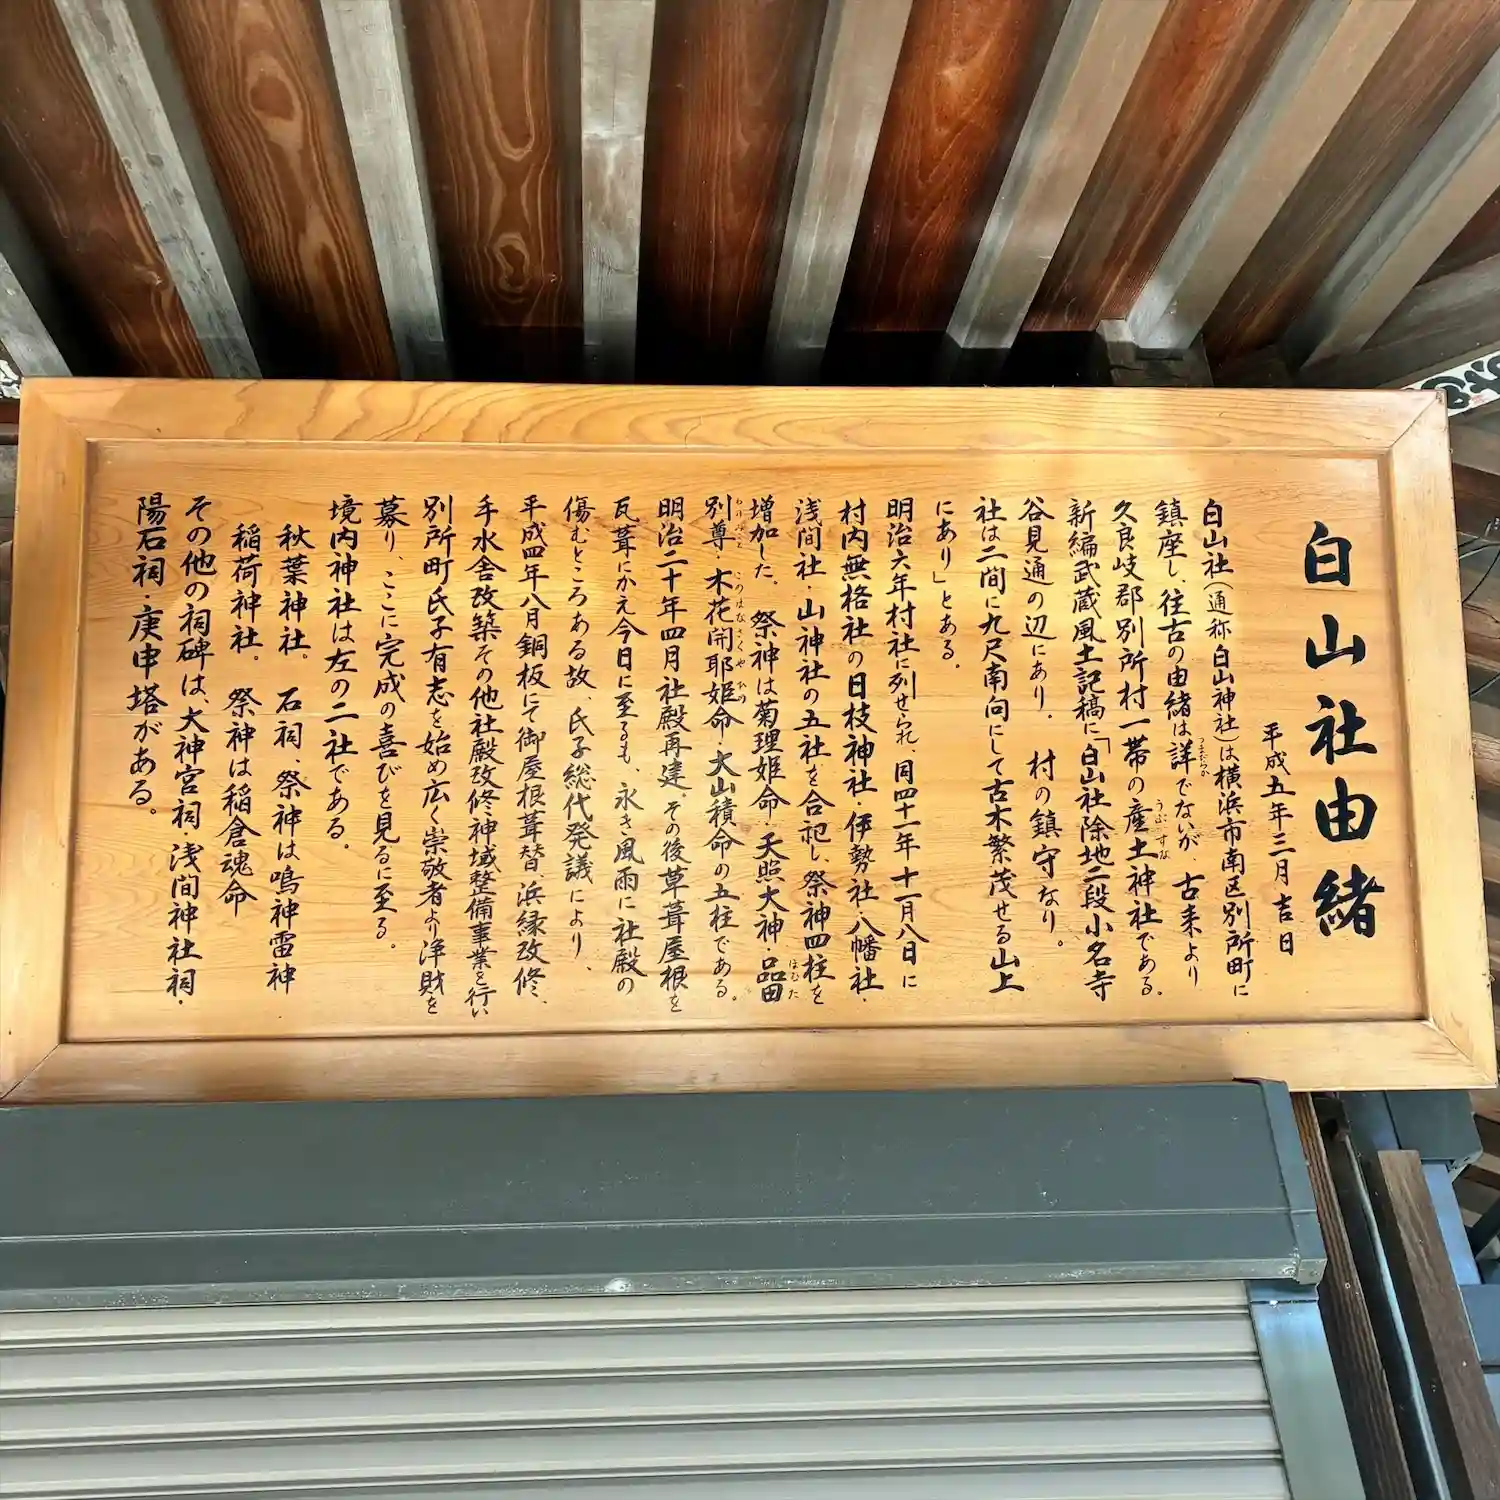 白山社由緒
平成五年三月吉日
白山社(通称白山神社)は横浜市南区別所町に
鎮座し、往古の由緒は詳でないが、古来より
つまびらか
久良岐郡別所村一帯の産土神社である。
うぶすな
新編武蔵風土記稿に「白山社除地二段小名寺
谷見通の辺にあり。村の鎮守なり。
社は二間に九尺南向にして古木繁茂せる山上
にあり」とある。
明治六年村社に列せられ、同四十一年十一月八日に
村内無格社の日枝神社・伊勢社・八幡社・
浅間社・山神社の五社を合祀し、祭神四柱を
増加した。祭神は菊理姫命・天照大神・品田
ほむた
別尊・木花開耶姫命・大山積命の五柱である。
わけみこと このはなさくやひめ
明治二十年四月社殿再建。その後草葺屋根を
瓦葺にかえ今日に至るも、永き風雨に社殿の
傷むところある故、氏子総代発議により、
平成四年八月銅板にて御屋根葺替浜縁改修、
手水舎改築その他社殿改修神域整備事業を行い
別所町氏子有志を始め広く崇敬者より浄財を
募り、ここに完成の喜びを見るに至る。
境内神社は左の二社である。
秋葉神社。石祠、祭神は鳴神雷神
稲荷神社。祭神は稲倉魂命
その他の祠碑は、大神宮祠・浅間神社祠・
陽石祠・庚申塔がある。